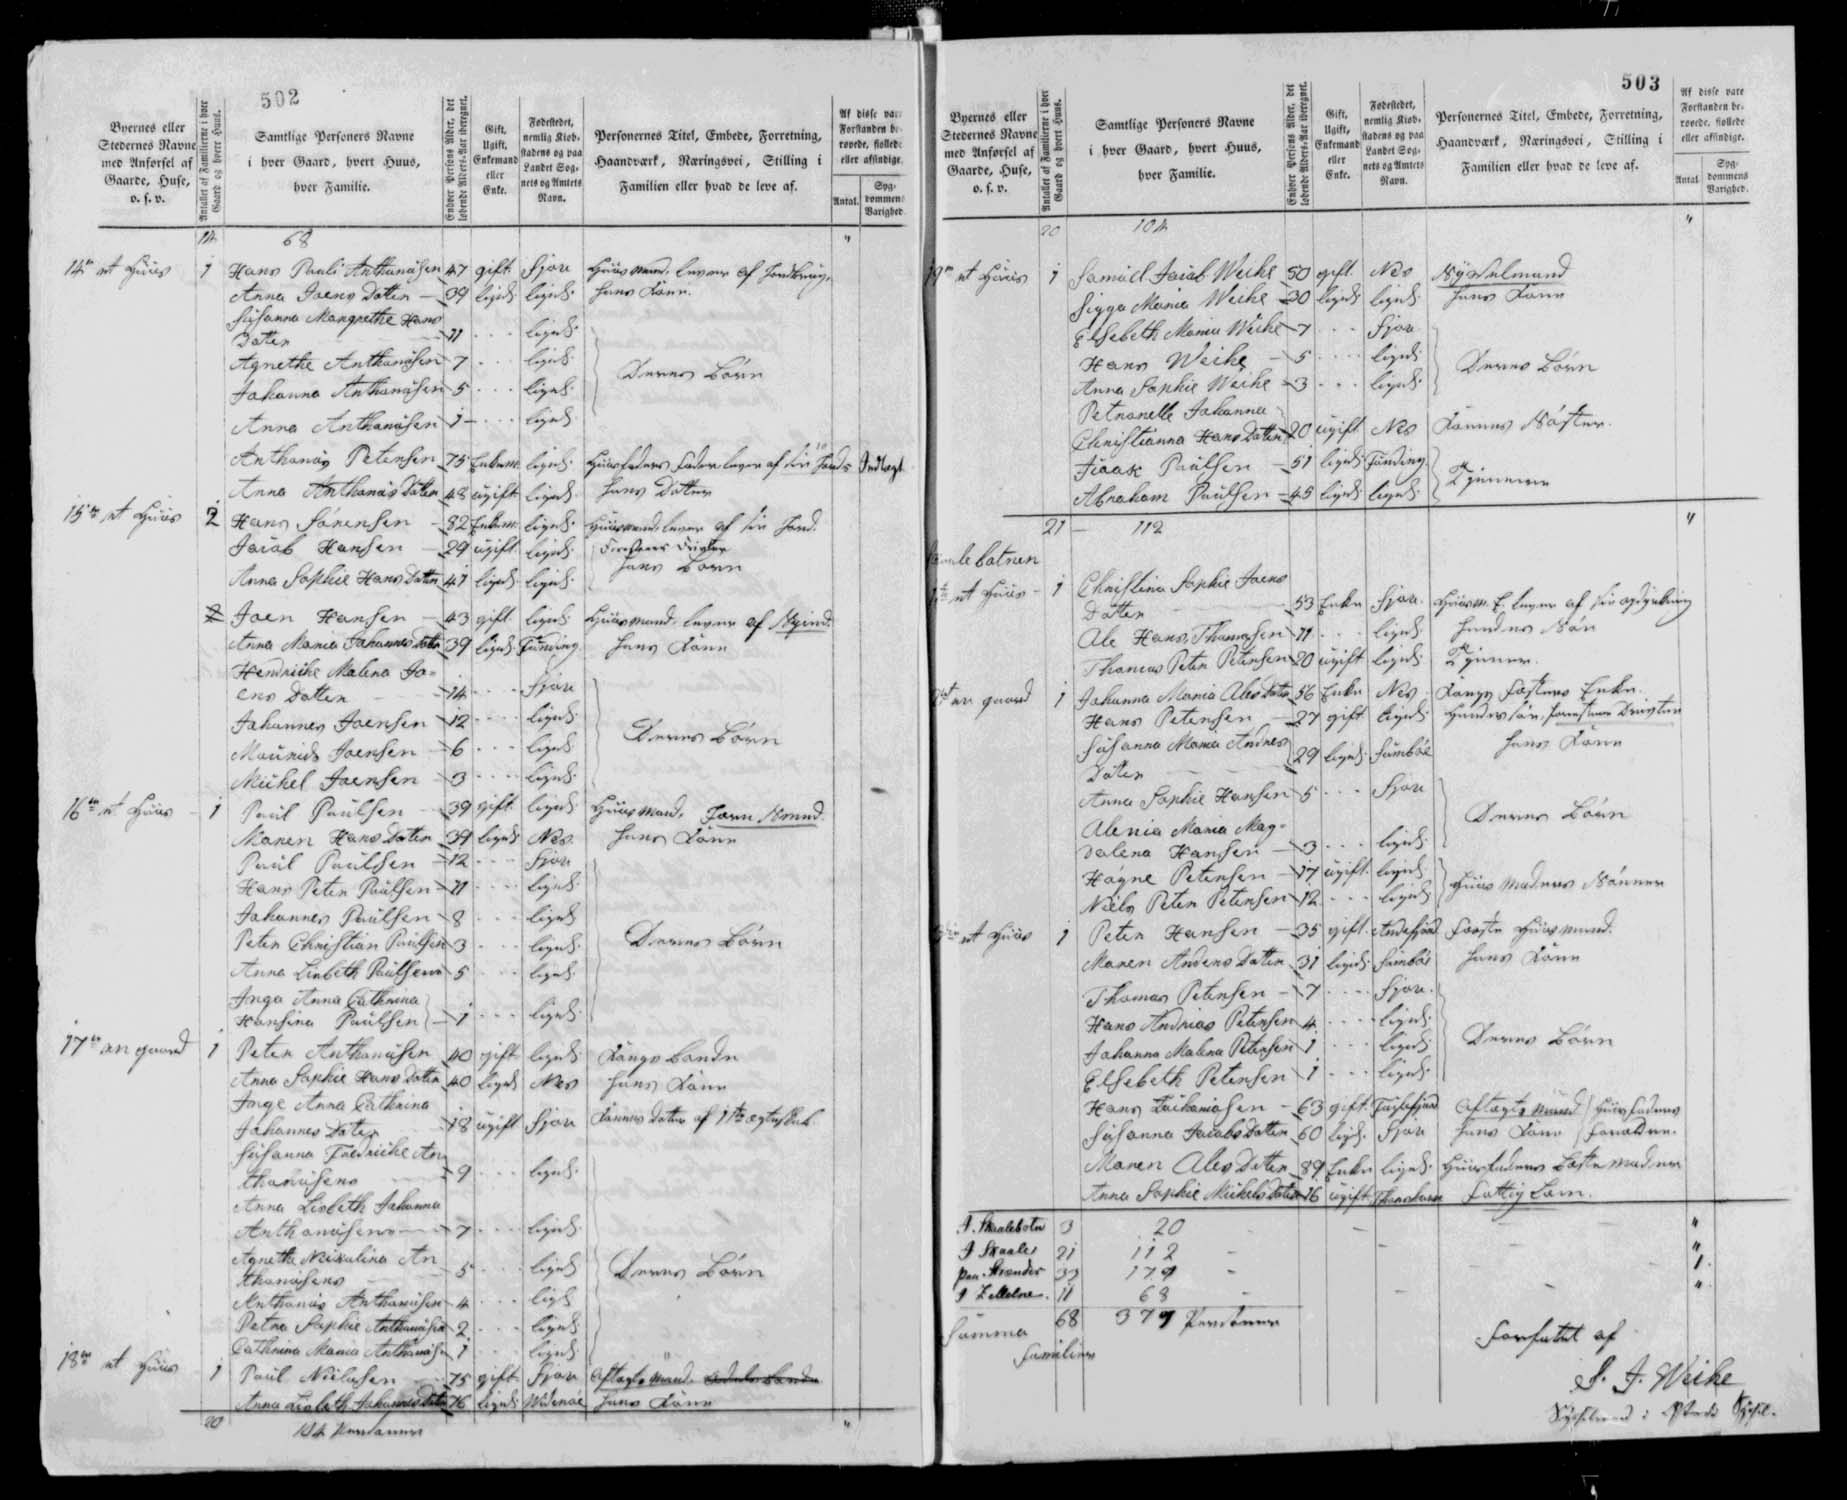 502
Byernes eller Stedernes Navne med Anførsel af Gaarde, Huse, o. s. v.
Antallet af Familierne i hver Gaard og hvert Huus.
Samtlige Personers Navne i hver Gaard, hvert Huus, hver Familie.
Enhver Persons Alder, det løbende Alders-Aar iberegnet.
Gift, Ugift, Enkemand eller Enke.
Fødestedet, nemlig Kiøbstadens og paa Landet Sognets og Amtets Navn.
Personernes Titel, Embede, Forretning, Haandværk, Næringsvei, Stilling i Familien eller hvad de leve af.
Af disse vare Forstanden berøvede, fiollede eller afsindige.
Antal.
Sygdommens Varighed.
14 68 "
14de et Huus 1 Hans Pauli Anthoniusen 47 gift Sjov Huusmand, lever af Jordbrug.
Anna Joens Datter 39 ligeds ligeds hans Kone.
Susanna Margrethe Hans
Datter 11 ligeds
Agnethe Anthoniusen 7 ligeds
Johanna Anthoniusen 5 ligeds Deres Børn
Anna Anthoniusen 1 ligeds
Anthonius Petersen 75 Enkem. ligeds Huusfaders Fader lever af sin Jord
Anna Anthonius Datter 48 ugift ligeds hans Datter
15de et Huus 2 Hans Sørensen 82 Enkem. ligeds Huusmand, lever af sin Jord.
Jacob Hansen 29 ugift ligeds
Anna Sophie Hans Datter 41 ligeds ligeds hans Børn
Joen Hansen 43 gift ligeds Huusmand, lever af
Anna Maria Johannes Datter 39 ligeds Funding hans Kone
Hendrikke Malena Jo-
ens Datter 14 Sjov
Johannes Joensen 12 ligeds
Mourids Joensen 6 ligeds Deres Børn
Mickel Joensen 3 ligeds
16de et Huus 1 Paul Paulsen 39 gift ligeds Huusmand,
Maren Hans Datter 39 ligeds Nes hans Kone
Paul Paulsen 12 Sjov
Hans Peter Paulsen 11 ligeds
Johannes Paulsen 8 ligeds
Peter Christian Paulsen 3 ligeds Deres Børn
Anna Lisbeth Paulsen 5 ligeds
Inga Anna Cathrina
Hansina Paulsen 1 ligeds
17de en gaard 1 Peter Anthoniusen 40 gift ligeds Kongs Bonde
Anna Sophie Hans Datter 40 ligeds Nes hans Kone
Inge Anna Cathrina
Johannes Datter 18 ugift Sjov Konens Datter af 1ste Ægteskab.
Susanna Fredrikke An
thoniusens 9 ligeds
Anna Lisbeth Johanna
Anthoniusens 7 ligeds
Agnethe Nicolina An
thoniusens 5 ligeds Deres Børn
Anthonius Anthoniusen 4 ligeds
Petra Sophie Anthoniusen 2 ligeds
Cathrina Maria Anthoniusen 1 ligeds
18de et Huus 1 Paul Nielsen 75 gift Sjov Aftægts Mand.
Anna Lisbeth Johannes Datter 76 ligeds hans Kone
20 104 Personer "
503
Byernes eller Stedernes Navne med Anførsel af Gaarde, Huse, o. s. v.
Antallet af Familierne i hver Gaard og hvert Huus.
Samtlige Personers Navne i hver Gaard, hvert Huus, hver Familie.
Enhver Persons Alder, det løbende Alders-Aar iberegnet.
Gift, Ugift, Enkemand eller Enke.
Fødestedet, nemlig Kiøbstadens og paa Landet Sognets og Amtets Navn.
Personernes Titel, Embede, Forretning, Haandværk, Næringsvei, Stilling i Familien eller hvad de leve af.
Af disse vare Forstanden berøvede, fiollede eller afsindige.
Antal.
Sygdommens Varighed.
20 104 "
19de et Huus 1 Samuel Jacob Weihe 50 gift Nes Sysselmand
Sigga Maria Weihe 30 ligeds ligeds hans Kone
Elsebeth Maria Weihe 7 Sjov
Hans Weihe 5 ligeds Deres Børn
Anna Sophie Weihe 3 ligeds
Petronelle Johanna
Christianna Hans Datter 20 ugift Nes Konens Søster.
Isaak Paulsen 51 ligeds Funding
Abraham Paulsen 45 ligeds ligeds Tjenere
21 112 "
1ste et Huus 1 Christina Sophie Joens
Datter 53 Enke Sjov
Ole Hans Thomasen 11 ligeds hendes Søn
Thomas Peter Petersen 20 ugift ligeds Tjener.
en gaard 1 Johanna Maria Oles Datter 56 Enke Nes Kongs Fæsters Enke.
Hans Petersen 27 gift ligeds hendes Søn,
Susanna Maria Andres
Datter 29 ligeds Sumbøe hans Kone
Anna Sophie Hansen 5 Sjov
Alenia Maria Mag-
dalena Hansen 3 ligeds Deres Børn
Høgne Petersen 17 ugift ligeds
Niels Peter Petersen 12 ligeds Huusmoders Sønner
et Huus 1 Peter Hansen 35 gift Andefjord Fæste Huusmand.
Maren Anders Datter 31 ligeds Sumbøe hans Kone
Thomas Petersen 7 Sjov
Hans Andrias Petersen 4 ligeds
Johanna Malena Petersen 1 ligeds Deres Børn
Elsebeth Petersen 1 ligeds
Hans Zachariasen 63 gift Fuglefjord Aftægts Mand Huusfaders
Susanna Jacobs Datter 60 ligeds Sjov hans Kone Forældre.
Maren Oles Datter 89 Enke ligeds Huusfaders Bestemoder
Anna Sophie Mickels Datter 16 ugift Thorshavn Fattig Lem.
I Skaalebotn 3 20 "
I Skaale 21 112 "
paa Strænder 33 179 1
11 68 "
Summa 68 379 Personer
Familier
Forfattet af
S. J. Weihe
Sysselmand i Østerøe Syssel.